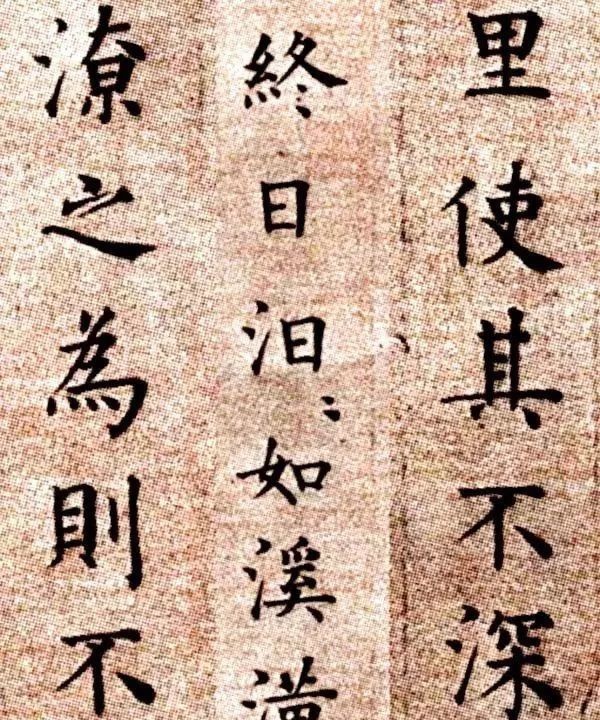 里使其不深
終日汩〻如溪潢
潦之為則不